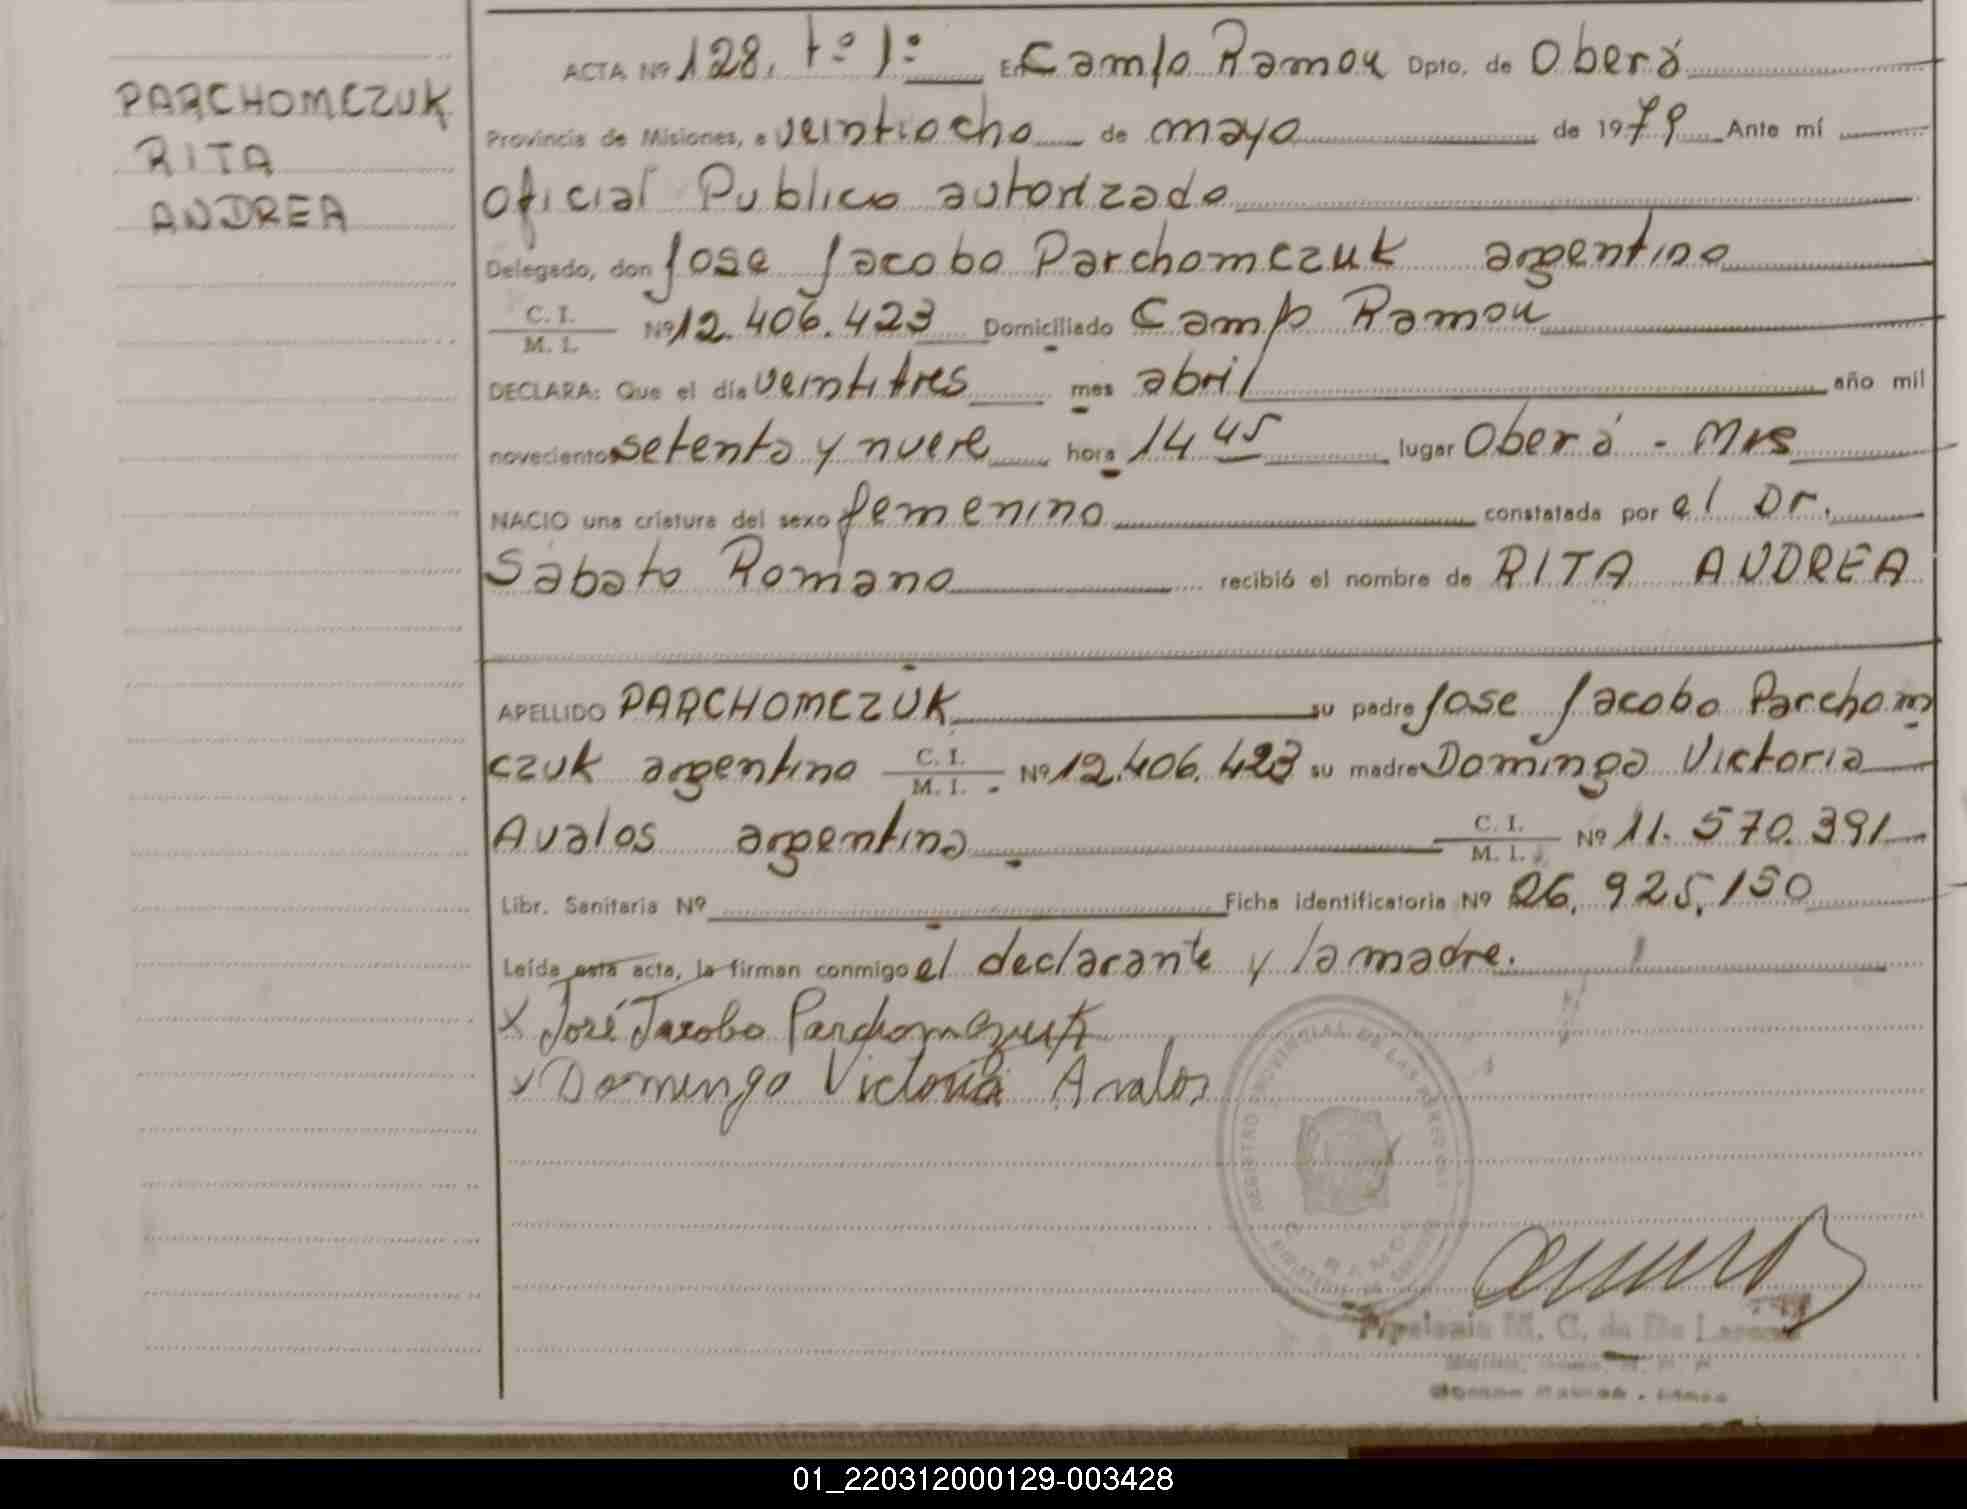 PARCHOMCZUK
RITA
ANDREA
ACTA Nº 128. tº 1º En Campo Ramon Dpto. de Oberá
Provincia de Misiones, a veintiocho de mayo de 1979 Ante mí
Oficial Publico autorizado
Delegado, don Jose Jacobo Parchomczuk argentino
C. I.
M. I. Nº 12.406.423 Domiciliado Campo Ramon
DECLARA: Que el día veintitres mes abril año mil
novecientos setenta y nueve hora 14 45 lugar Oberá - Mns
NACIO una criatura del sexo femenino constatada por el Dr.
Sabato Romano recibió el nombre de RITA ANDREA
APELLIDO PARCHOMCZUK su padre Jose Jacobo Parchom
czuk argentino C. I. M. I. Nº 12.406.423 su madre Dominga Victoria
Avalos argentina C. I. M. I. Nº 11.570.391
Libr. Sanitaria Nº Ficha identificatoria Nº 26.925.150
Leída esta acta, la firman conmigo el declarante y la madre.
x José Jacobo Parchomczuk
x Dominga Victoria Avalos
REGISTRO PROVINCIAL DE LAS PERSONAS
RAMON
M. C. de
01_220312000129-003428